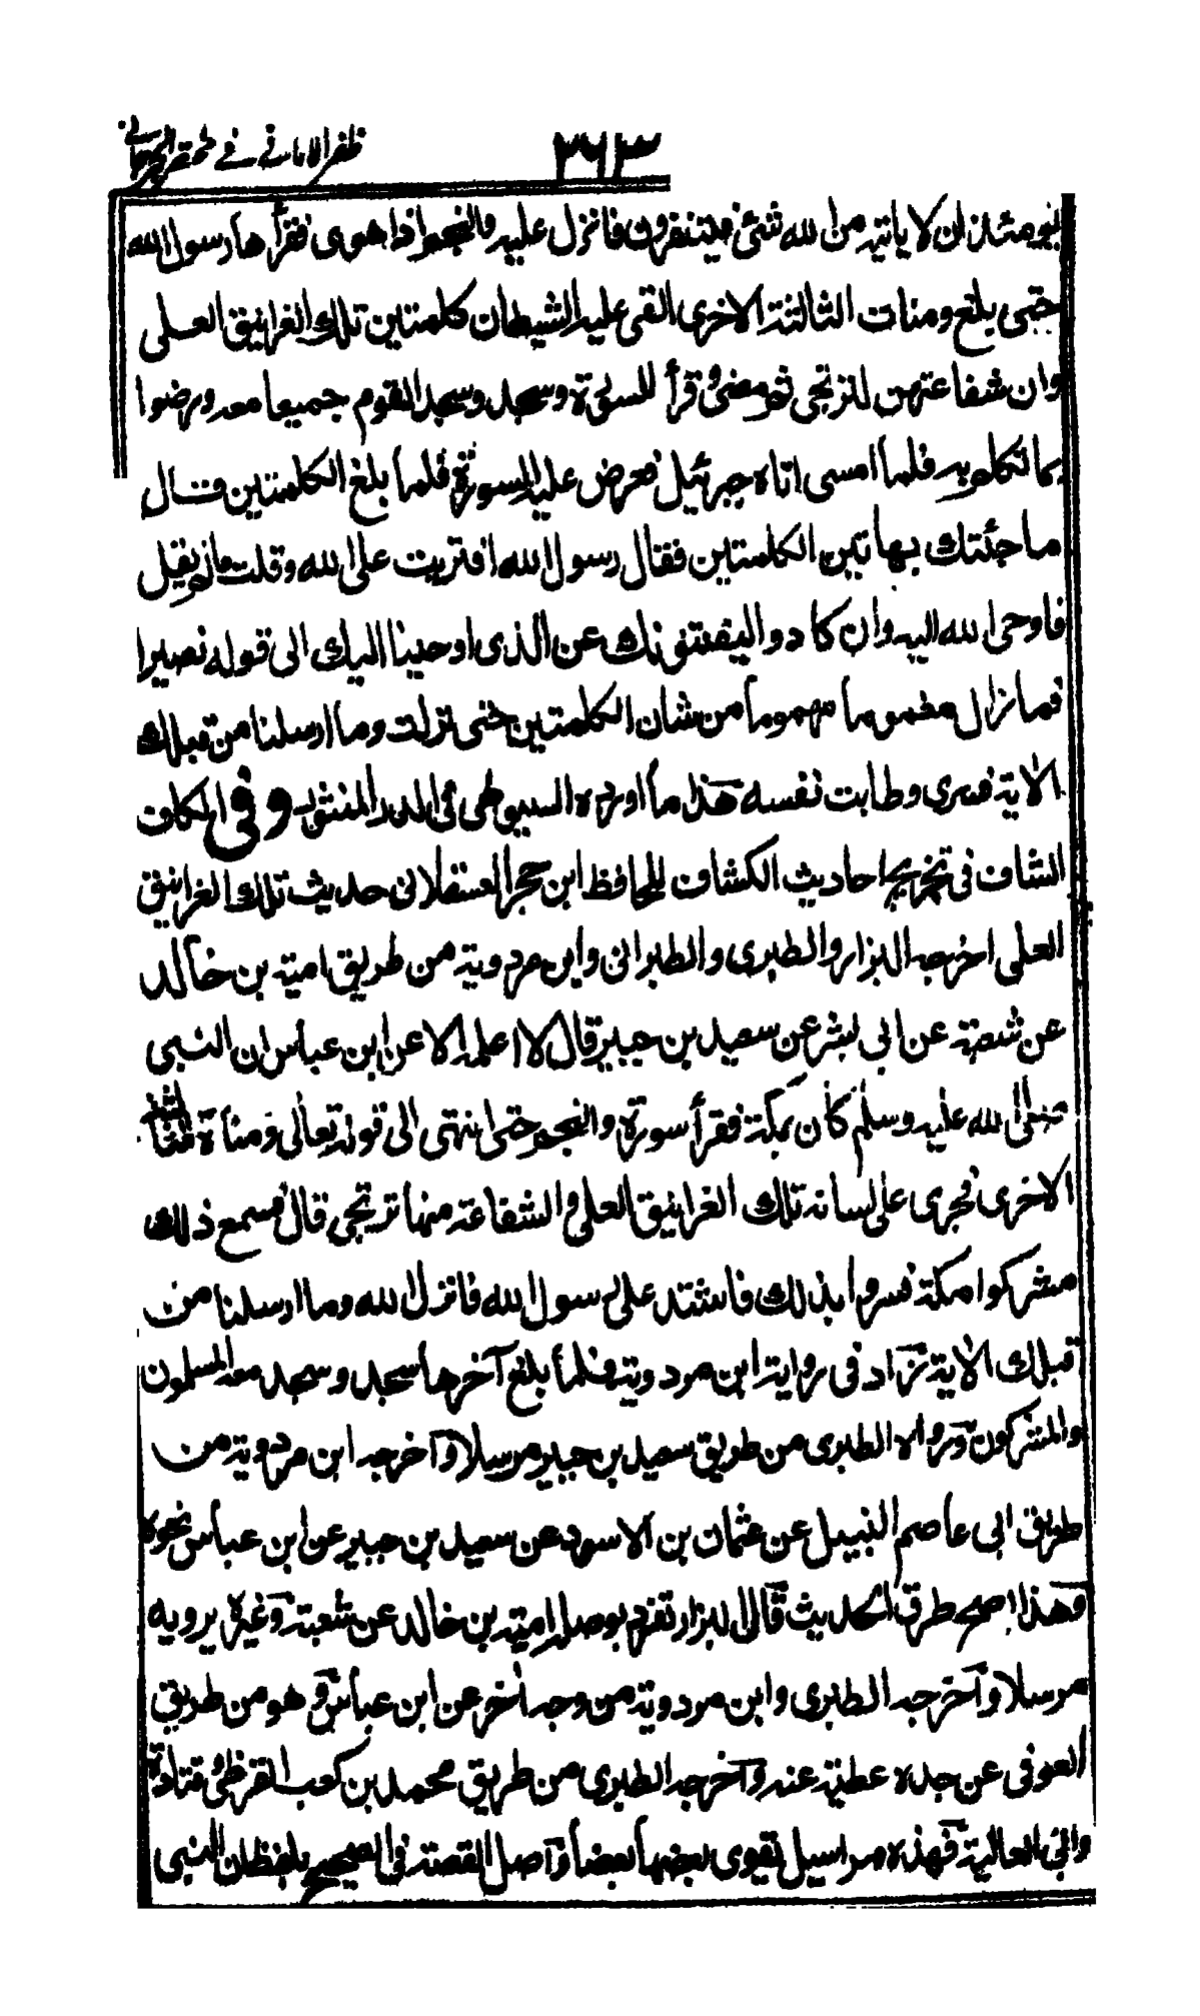 ظفر الاماني في مختصر الجرجاني
٣٦٣
يومئذ ان لا ياتيه من الله شئ فيتنفرون فانزل عليه والنجم اذا هوى فقرأها رسول الله
حتى بلغ ومنات الثالثة الاخرى القى عليه الشيطان كلمتين تلك الغرانيق العلى
وان شفاعتهن لترتجى ثم مضى وقرأ السورة وسجد وسجد القوم جميعا معه ورضوا
بما تكلم به فلما امسى اتاه جبرئيل فعرض عليه السورة فلما بلغ الكلمتين قال
ما جئتك بهاتين الكلمتين فقال رسول الله افتريت على الله وقلت ما لم يقل
فاوحى الله اليه وان كادوا ليفتنونك عن الذى اوحينا اليك الى قوله نصيرا
فما زال مغموما مهموما من شان الكلمتين حتى نزلت وما ارسلنا من قبلك
الاية فسرى وطابت نفسه هذا ما اورده السيوطى فى الدر المنثور وفى الكاف
الشاف فى تخريج احاديث الكشاف للحافظ ابن حجر العسقلانى حديث تلك الغرانيق
العلى اخرجه البزار والطبرى والطبرانى وابن مردوية من طريق امية بن خالد
عن شعبة عن ابى بشر عن سعيد بن جبير قال لا اعلمه الا عن ابن عباس ان النبى
صلى الله عليه وسلم كان بمكة فقرأ سورة والنجم حتى انتهى الى قوله تعالى ومناة الثالثة
الاخرى فجرى على لسانه تلك الغرانيق العلى والشفاعة منها ترتجى قال فسمع ذلك
مشركوا مكة فسروا بذلك فاشتد على رسول الله فانزل الله وما ارسلنا من
قبلك الاية زاد فى رواية ابن مردوية فلما بلغ آخرها سجد وسجد معه المسلمون
والمشركون ورواه الطبرى من طريق سعيد بن جبير مرسلا وآخرجه ابن مردوية من
طريق ابى عاصم النبيل عن عثمان بن الاسود عن سعيد بن جبير عن ابن عباس نحوه
وهذا اصح طرق الحديث قال البزار تفرد بوصله امية بن خالد عن شعبة وغيره يرويه
مرسلا وآخرجه الطبرى وابن مردوية من وجه آخر عن ابن عباس وهو من طريق
العوفى عن جده عطية عنه وآخرجه الطبرى من طريق محمد بن كعب القرظى وقتادة
وابى العالية فهذه مراسيل تقوى بعضها بعضا وآصل القصة فى الصحيح بلفظ ان النبى